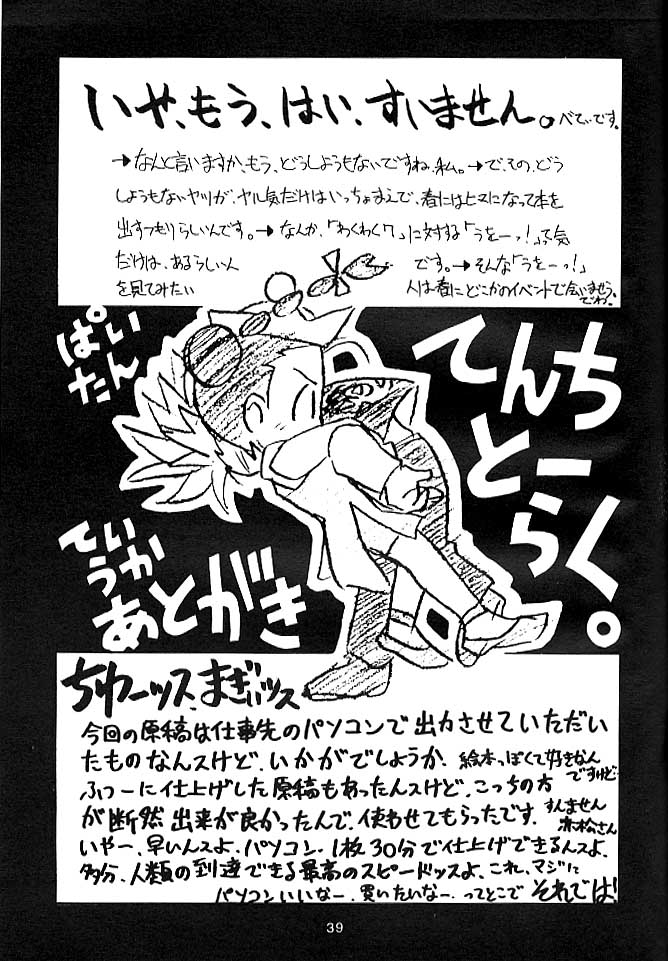 いや、もう、はい、すいません。べてぃです。
→なんと言いますか、もう、どうしようもないですね、私。→で、その、どう
しようもないヤツが、ヤル気だけはいっちょまえで、春にはヒマになって本を
出すつもりらしいんです。→なんか、「わくわく7」に対する「うをーっ!」って気
だけは、あるらしい人です。→そんな「うをーっ!」
を見てみたい人は春にどこかのイベントで会いませう。
でわ。
ぱい
たん
てんち
とーく
らく。
ていうか
あとがき
ちゅーッス、まぎぃッス
今回の原稿は仕事先のパソコンで出力させていただい
たものなんスけど、いかがでしょうか、絵本っぽくて好きなん
ですけど…
ふつーに仕上げした原稿もあったんスけど、こっちの方
が断然出来が良かったんで、使わせてもらったです。すんません
赤松さん
いやー、早いんスよ、パソコン。1枚30分で仕上げできるんスよ、
多分、人類の到達できる最高のスピードッスよ、これ、マジに
パソコンいいなー、買いたいなー、ってとこで それでは!
39